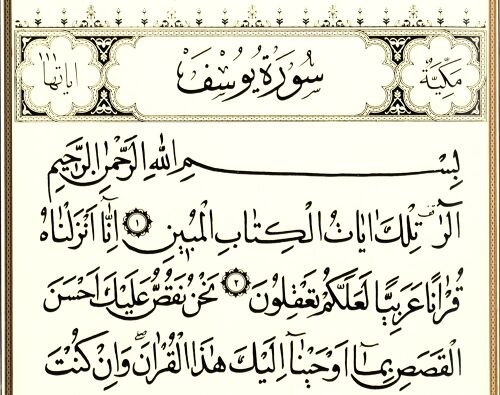 مَكِّيَّةٌ سُورَةُ يُوسُفَ اٰيَاتُهَا
بِسْمِ اللّٰهِ الرَّحْمٰنِ الرَّحِيمِ
الٓرٰ تِلْكَ اٰيَاتُ الْكِتَابِ الْمُبٖينِ ﴿١﴾ اِنَّٓا اَنْزَلْنَاهُ
قُرْاٰنًا عَرَبِيًّا لَعَلَّكُمْ تَعْقِلُونَ ﴿٢﴾ نَحْنُ نَقُصُّ عَلَيْكَ اَحْسَنَ
الْقَصَصِ بِمَٓا اَوْحَيْنَٓا اِلَيْكَ هٰذَا الْقُرْاٰنَۗ وَاِنْ كُنْتَ